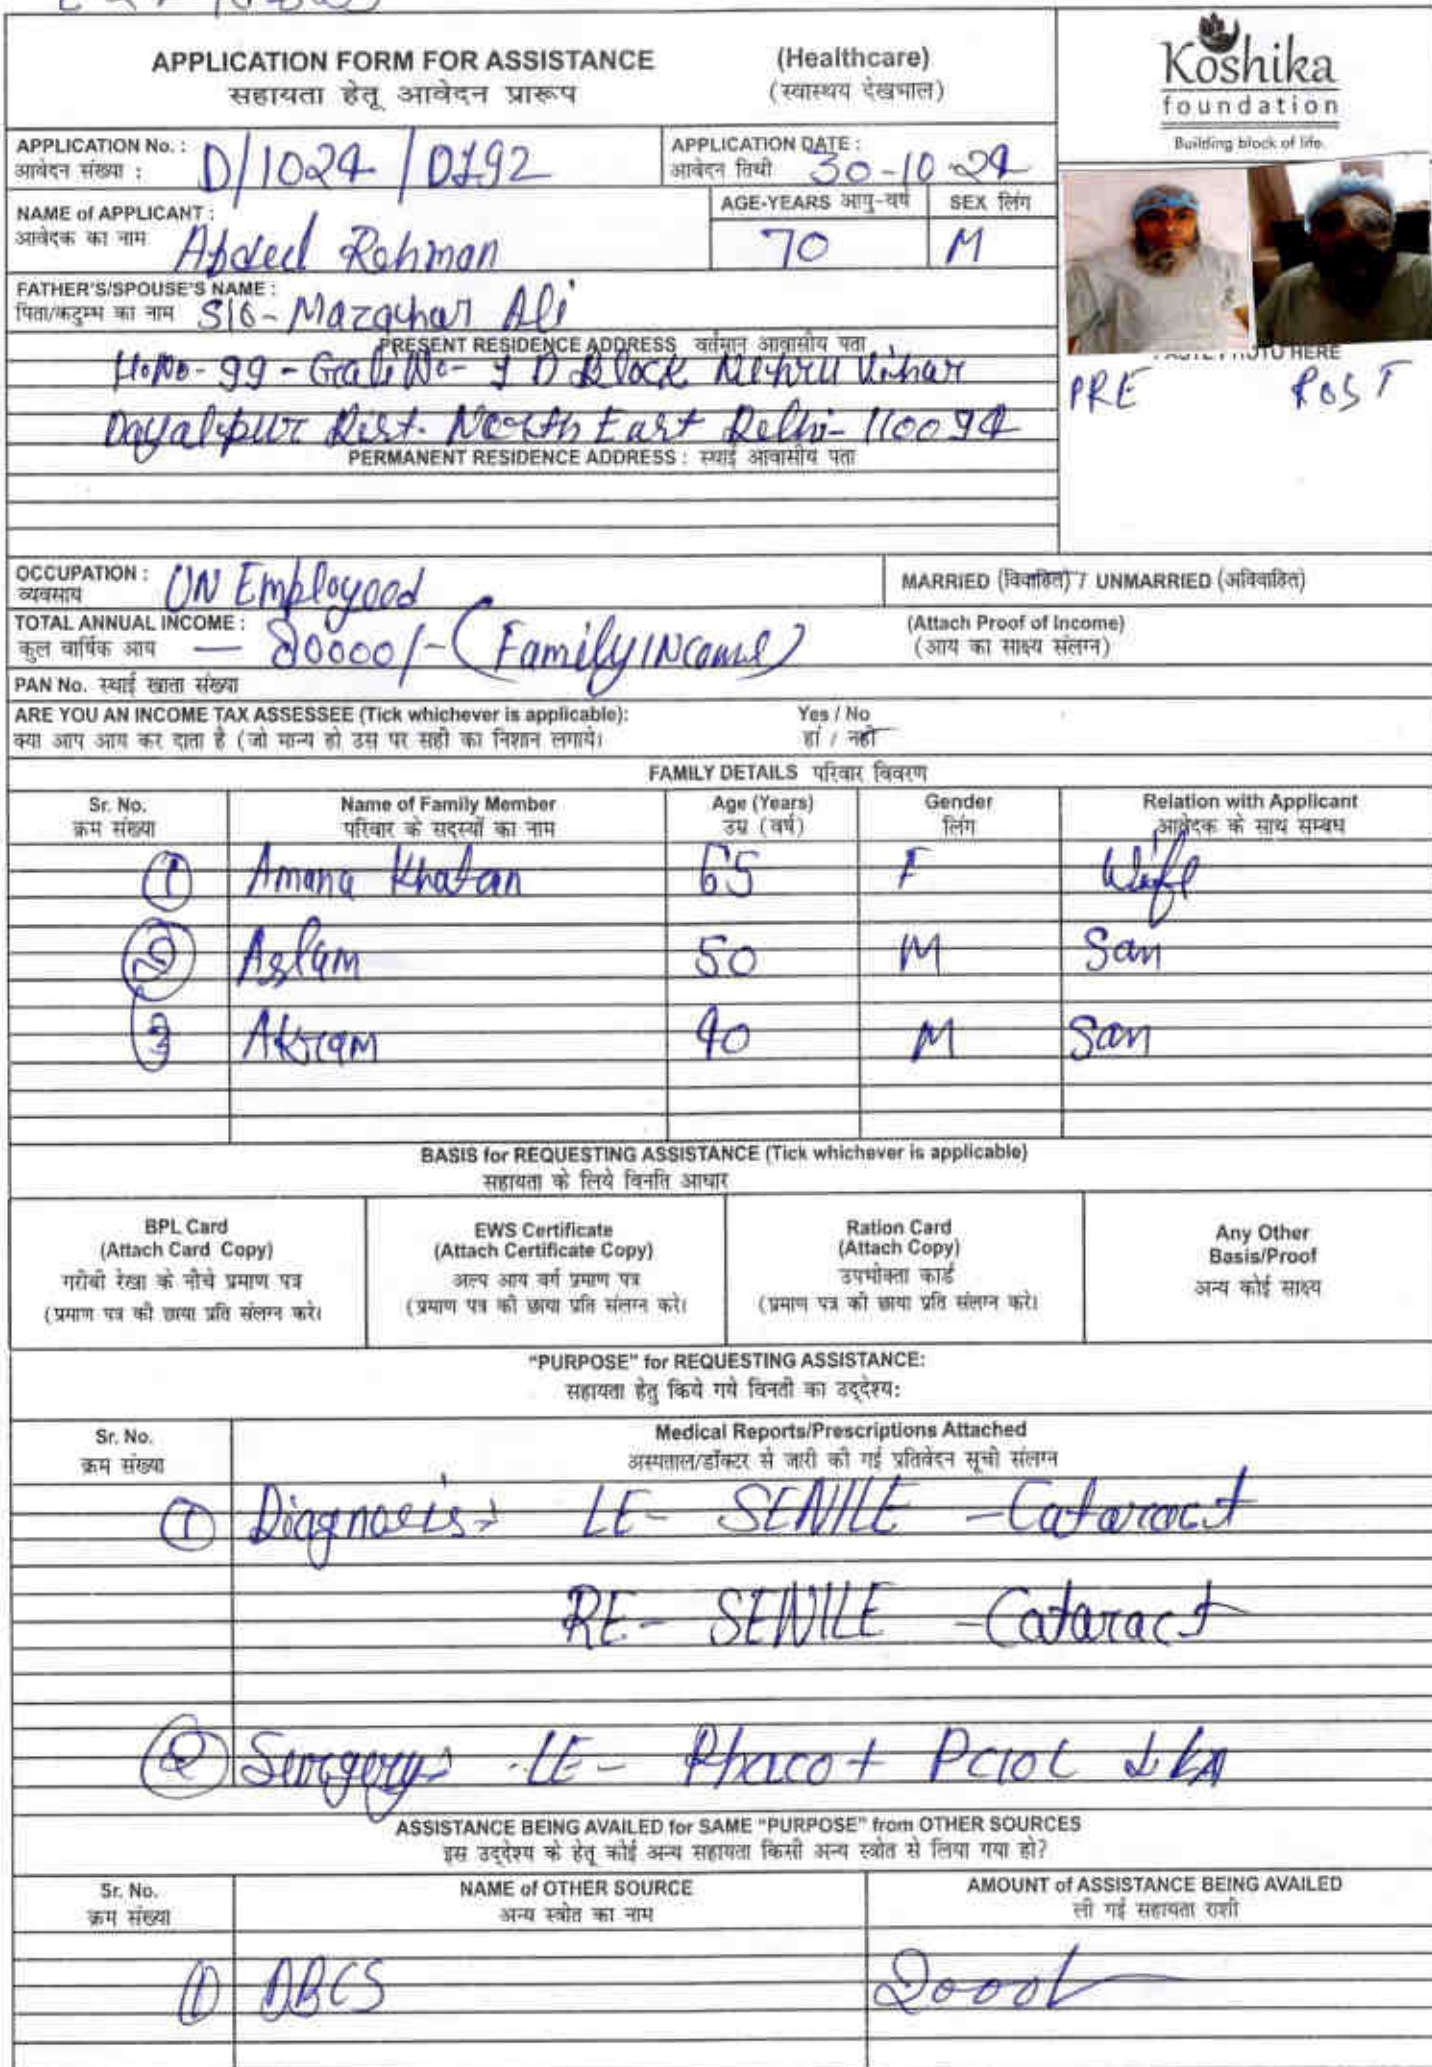 APPLICATION FORM FOR ASSISTANCE (Healthcare)
सहायता हेतू आवेदन प्रारूप (स्वास्थय देखभाल)
Koshika
foundation
Building block of life.
APPLICATION No. :
आवेदन संख्या : D/1024/0192
APPLICATION DATE :
आवेदन तिथी 30-10-24
NAME of APPLICANT :
आवेदक का नाम Abded Rehman
AGE-YEARS आयु-वर्ष 70
SEX लिंग M
FATHER'S/SPOUSE'S NAME :
पिता/कटुम्भ का नाम S/O- Mazghar Ali
PRESENT RESIDENCE ADDRESS वर्तमान आवासीय पता
H.No- 99 - Gali No- 9 D Block Nehru Vihar
Dayalpur Dist. North East Delhi- 110094
PHOTO HERE
PRE POST
PERMANENT RESIDENCE ADDRESS : स्थाई आवासीय पता
OCCUPATION :
व्यवसाय UN Employeed
MARRIED (विवाहित) / UNMARRIED (अविवाहित)
TOTAL ANNUAL INCOME :
कुल वार्षिक आय — 80000/- (Family INcome)
(Attach Proof of Income)
(आय का साक्ष्य संलग्न)
PAN No. स्थाई खाता संख्या
ARE YOU AN INCOME TAX ASSESSEE (Tick whichever is applicable): Yes / No
क्या आप आय कर दाता है (जो मान्य हो उस पर सही का निशान लगाये। हां / नही
FAMILY DETAILS परिवार विवरण
Sr. No. Name of Family Member Age (Years) Gender Relation with Applicant
क्रम संख्या परिवार के सदस्यों का नाम उम्र (वर्ष) लिंग आवेदक के साथ सम्बध
1 Amana Khatan 65 F Wife
2 Aslam 50 M San
3 Akram 40 M San
BASIS for REQUESTING ASSISTANCE (Tick whichever is applicable)
सहायता के लिये विनति आधार
BPL Card
(Attach Card Copy)
गरीबी रेखा के नीचे प्रमाण पत्र
(प्रमाण पत्र की छाया प्रति संलग्न करे।
EWS Certificate
(Attach Certificate Copy)
अल्प आय वर्ग प्रमाण पत्र
(प्रमाण पत्र की छाया प्रति संलग्न करे।
Ration Card
(Attach Copy)
उपभोक्ता कार्ड
(प्रमाण पत्र की छाया प्रति संलग्न करे।
Any Other
Basis/Proof
अन्य कोई साक्ष्य
"PURPOSE" for REQUESTING ASSISTANCE:
सहायता हेतु किये गये विनती का उद्देश्य:
Sr. No. Medical Reports/Prescriptions Attached
क्रम संख्या अस्पताल/डॉक्टर से जारी की गई प्रतिवेदन सूची संलग्न
1 Diagnosis LE- SENILE - Cataract
RE- SENILE - Cataract
2 Surgery LE - Phaco + PCIOL
ASSISTANCE BEING AVAILED for SAME "PURPOSE" from OTHER SOURCES
इस उद्देश्य के हेतू कोई अन्य सहायता किसी अन्य स्त्रोत से लिया गया हो?
Sr. No. NAME of OTHER SOURCE AMOUNT of ASSISTANCE BEING AVAILED
क्रम संख्या अन्य स्त्रोत का नाम ली गई सहायता राशी
1 DBCS 2000/-